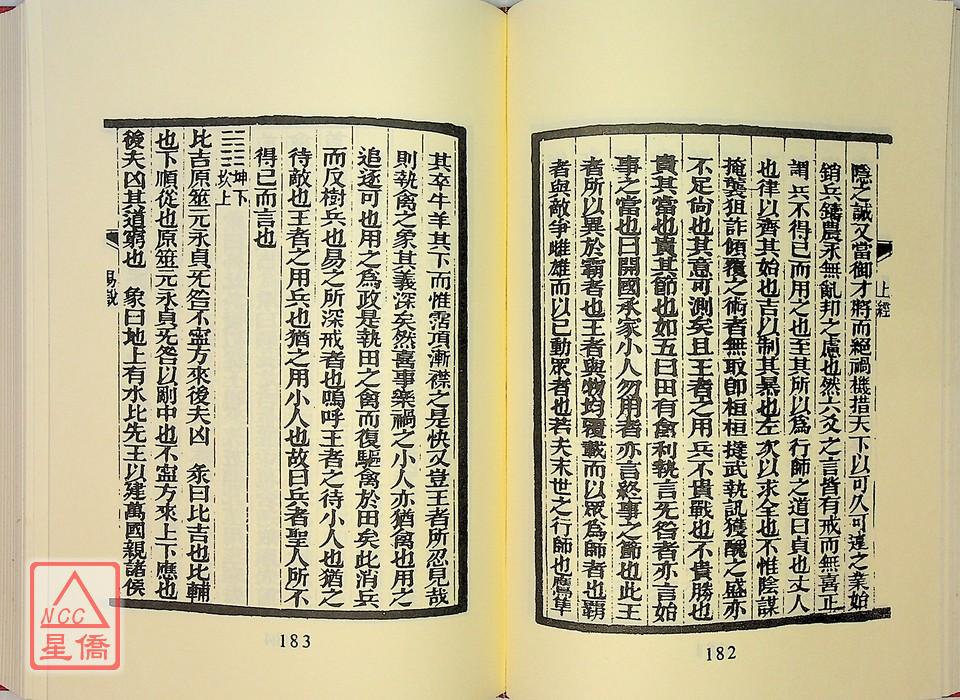 上經
隱之誠又當御才將而絕禍機措天下以可久可遠之業始
銷兵鑄農永無亂邦之慮也然六爻之言皆有戒而無喜正
謂兵不得已而用之也至其所以為行師之道曰貞也丈人
也律以齊其始也吉以制其暴也左次以求全也不惟陰謀
掩襲狙詐傾覆之術者無取卽桓桓撻武執訊獲醜之盛亦
不足尙也其意可測矣且王者之用兵不貴戰也不貴勝也
貴其當也貴其節也如五曰田有禽利執言无咎者亦言始
事之當也曰開國承家小人勿用者亦言終事之節也此王
者所以異於霸者也王者與物均覆載而以眾為師者也霸
者與敵爭雌雄而以已動眾者也若夫末世之行師也鷹草
182
其卒牛羊其下而惟霑項漸襟之是快又豈王者所忍見哉
則執禽之象其義深矣然喜事樂禍之小人亦猶禽也用之
追逐可也用之為政是執田之禽而復驅禽於田矣此消兵
而反樹兵也易之所深戒者也嗚呼王者之待小人也猶之
待敵也王者之用兵也猶之用小人也故曰兵者聖人所不
得已而言也
坤下
坎上
比吉原筮元永貞无咎不寍方來後夫凶 彖曰比吉也比輔
也下順從也原筮元永貞无咎以剛中也不寍方來上下應也
後夫凶其道窮也 象曰地上有水比先王以建萬國親諸侯
183
NCC
星僑